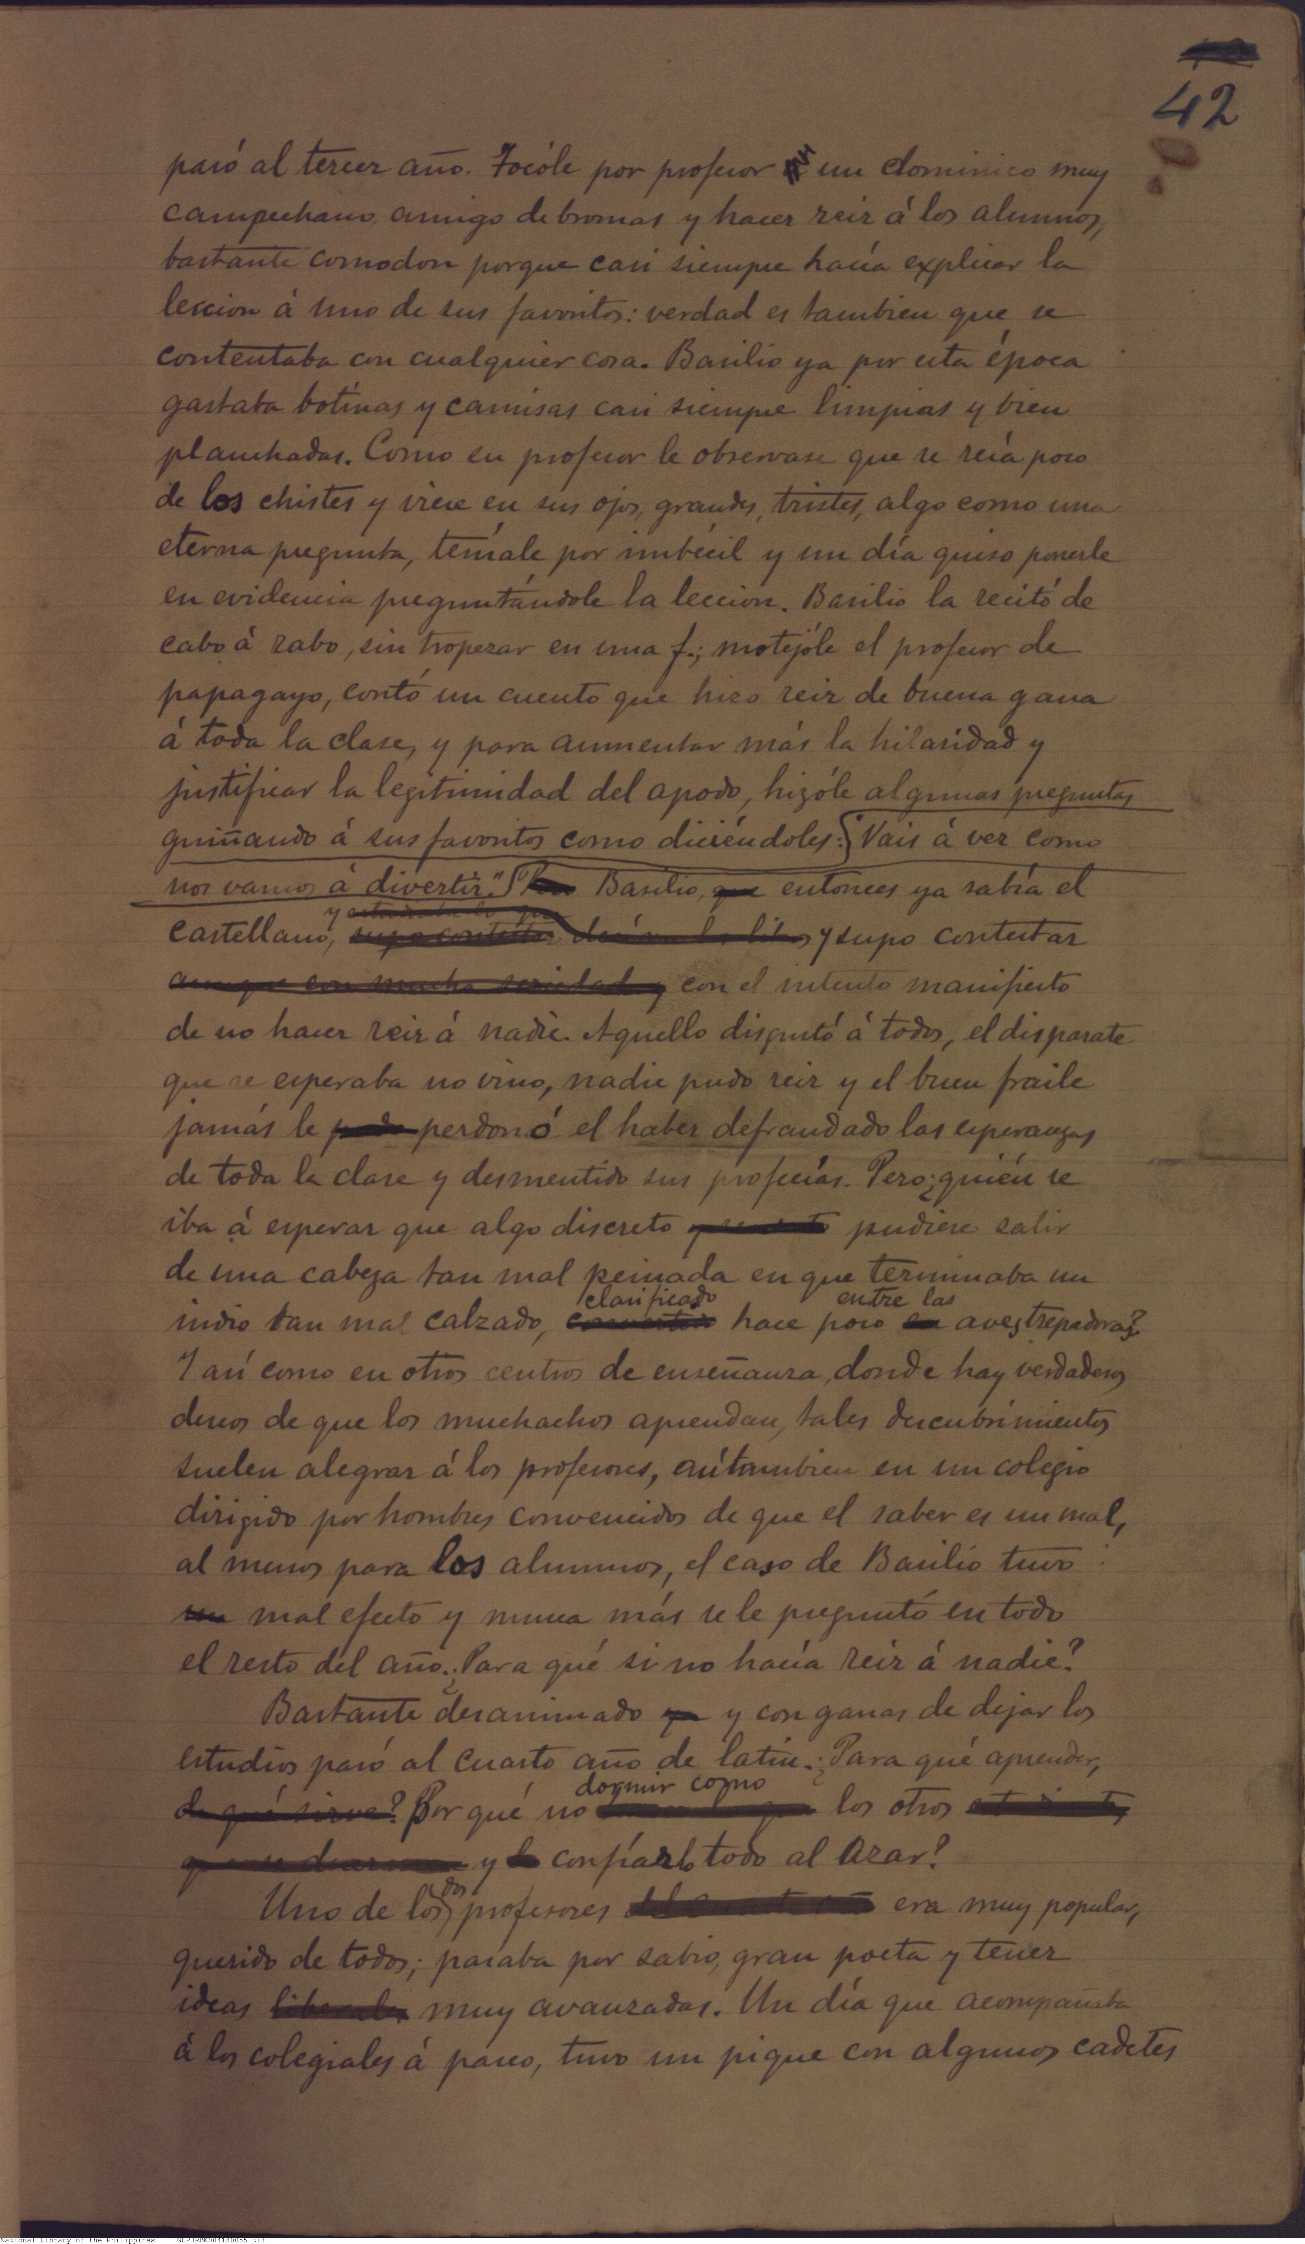 42
pasó al tercer año. Tocóle por profesor un dominico muy
campechano, amigo de bromas y hacer reir á los alumnos,
bastante comodon porque casi siempre hacía explicar la
leccion á uno de sus favoritos: verdad es tambien que se
contentaba con cualquier cosa. Basilio ya por esta época
gastaba botinas y camisas casi siempre limpias y bien
planchadas. Como su profesor le observase que se reía poco
de los chistes y viese en sus ojos, grandes, tristes, algo como una
eterna pregunta, teníale por imbécil y un día quiso ponerle
en evidencia preguntándole la leccion. Basilio la recitó de
cabo á rabo, sin tropezar en una f.; motejóle el profesor de
papagayo, contó un cuento que hizo reir de buena gana
á toda la clase, y para aumentar más la hilaridad y
justificar la legitimidad del apodo, hizóle algunas preguntas
guiñando á sus favoritos como diciéndoles: Vais á ver como
nos vamos á divertir." Basilio, que entonces ya sabía el
y estudiaba lo que
castellano, supo contestar y supo contestar
aunque con mucha seriedad y con el intento manifiesto
de no hacer reir á nadie. Aquello disgustó á todos, el disparate
que se esperaba no vino, nadie pudo reir y el buen fraile
jamás le pudo perdonó el haber defraudado las esperanzas
de toda la clase y desmentido sus profecías. Pero ¿quién se
iba á esperar que algo discreto pudiese salir
de una cabeza tan mal peinada en que terminaba un
clasificado entre las
indio tan mal calzado, hace poco en aves trepadoras?
Y así como en otros centros de enseñanza, donde hay verdaderos
deseos de que los muchachos aprendan, tales descubrimientos
suelen alegrar á los profesores, así tambien en un colegio
dirigido por hombres convencidos de que el saber es un mal,
al menos para los alumnos, el caso de Basilio tuvo
un mal efecto y nunca más se le preguntó en todo
el resto del año. ¿Para qué si no hacía reir á nadie?
Bastante desanimado ya y con ganas de dejar los
estudios pasó al cuarto año de latin. ¿Para qué aprender,
dormir como
de qué sirve? Por qué no los otros
y confiarlo todo al azar?
dos
Uno de los profesores era muy popular,
querido de todos; pasaba por sabio, gran poeta y tener
ideas liberales muy avanzadas. Un día que acompañaba
á los colegiales á paseo, tuvo un pique con algunos cadetes